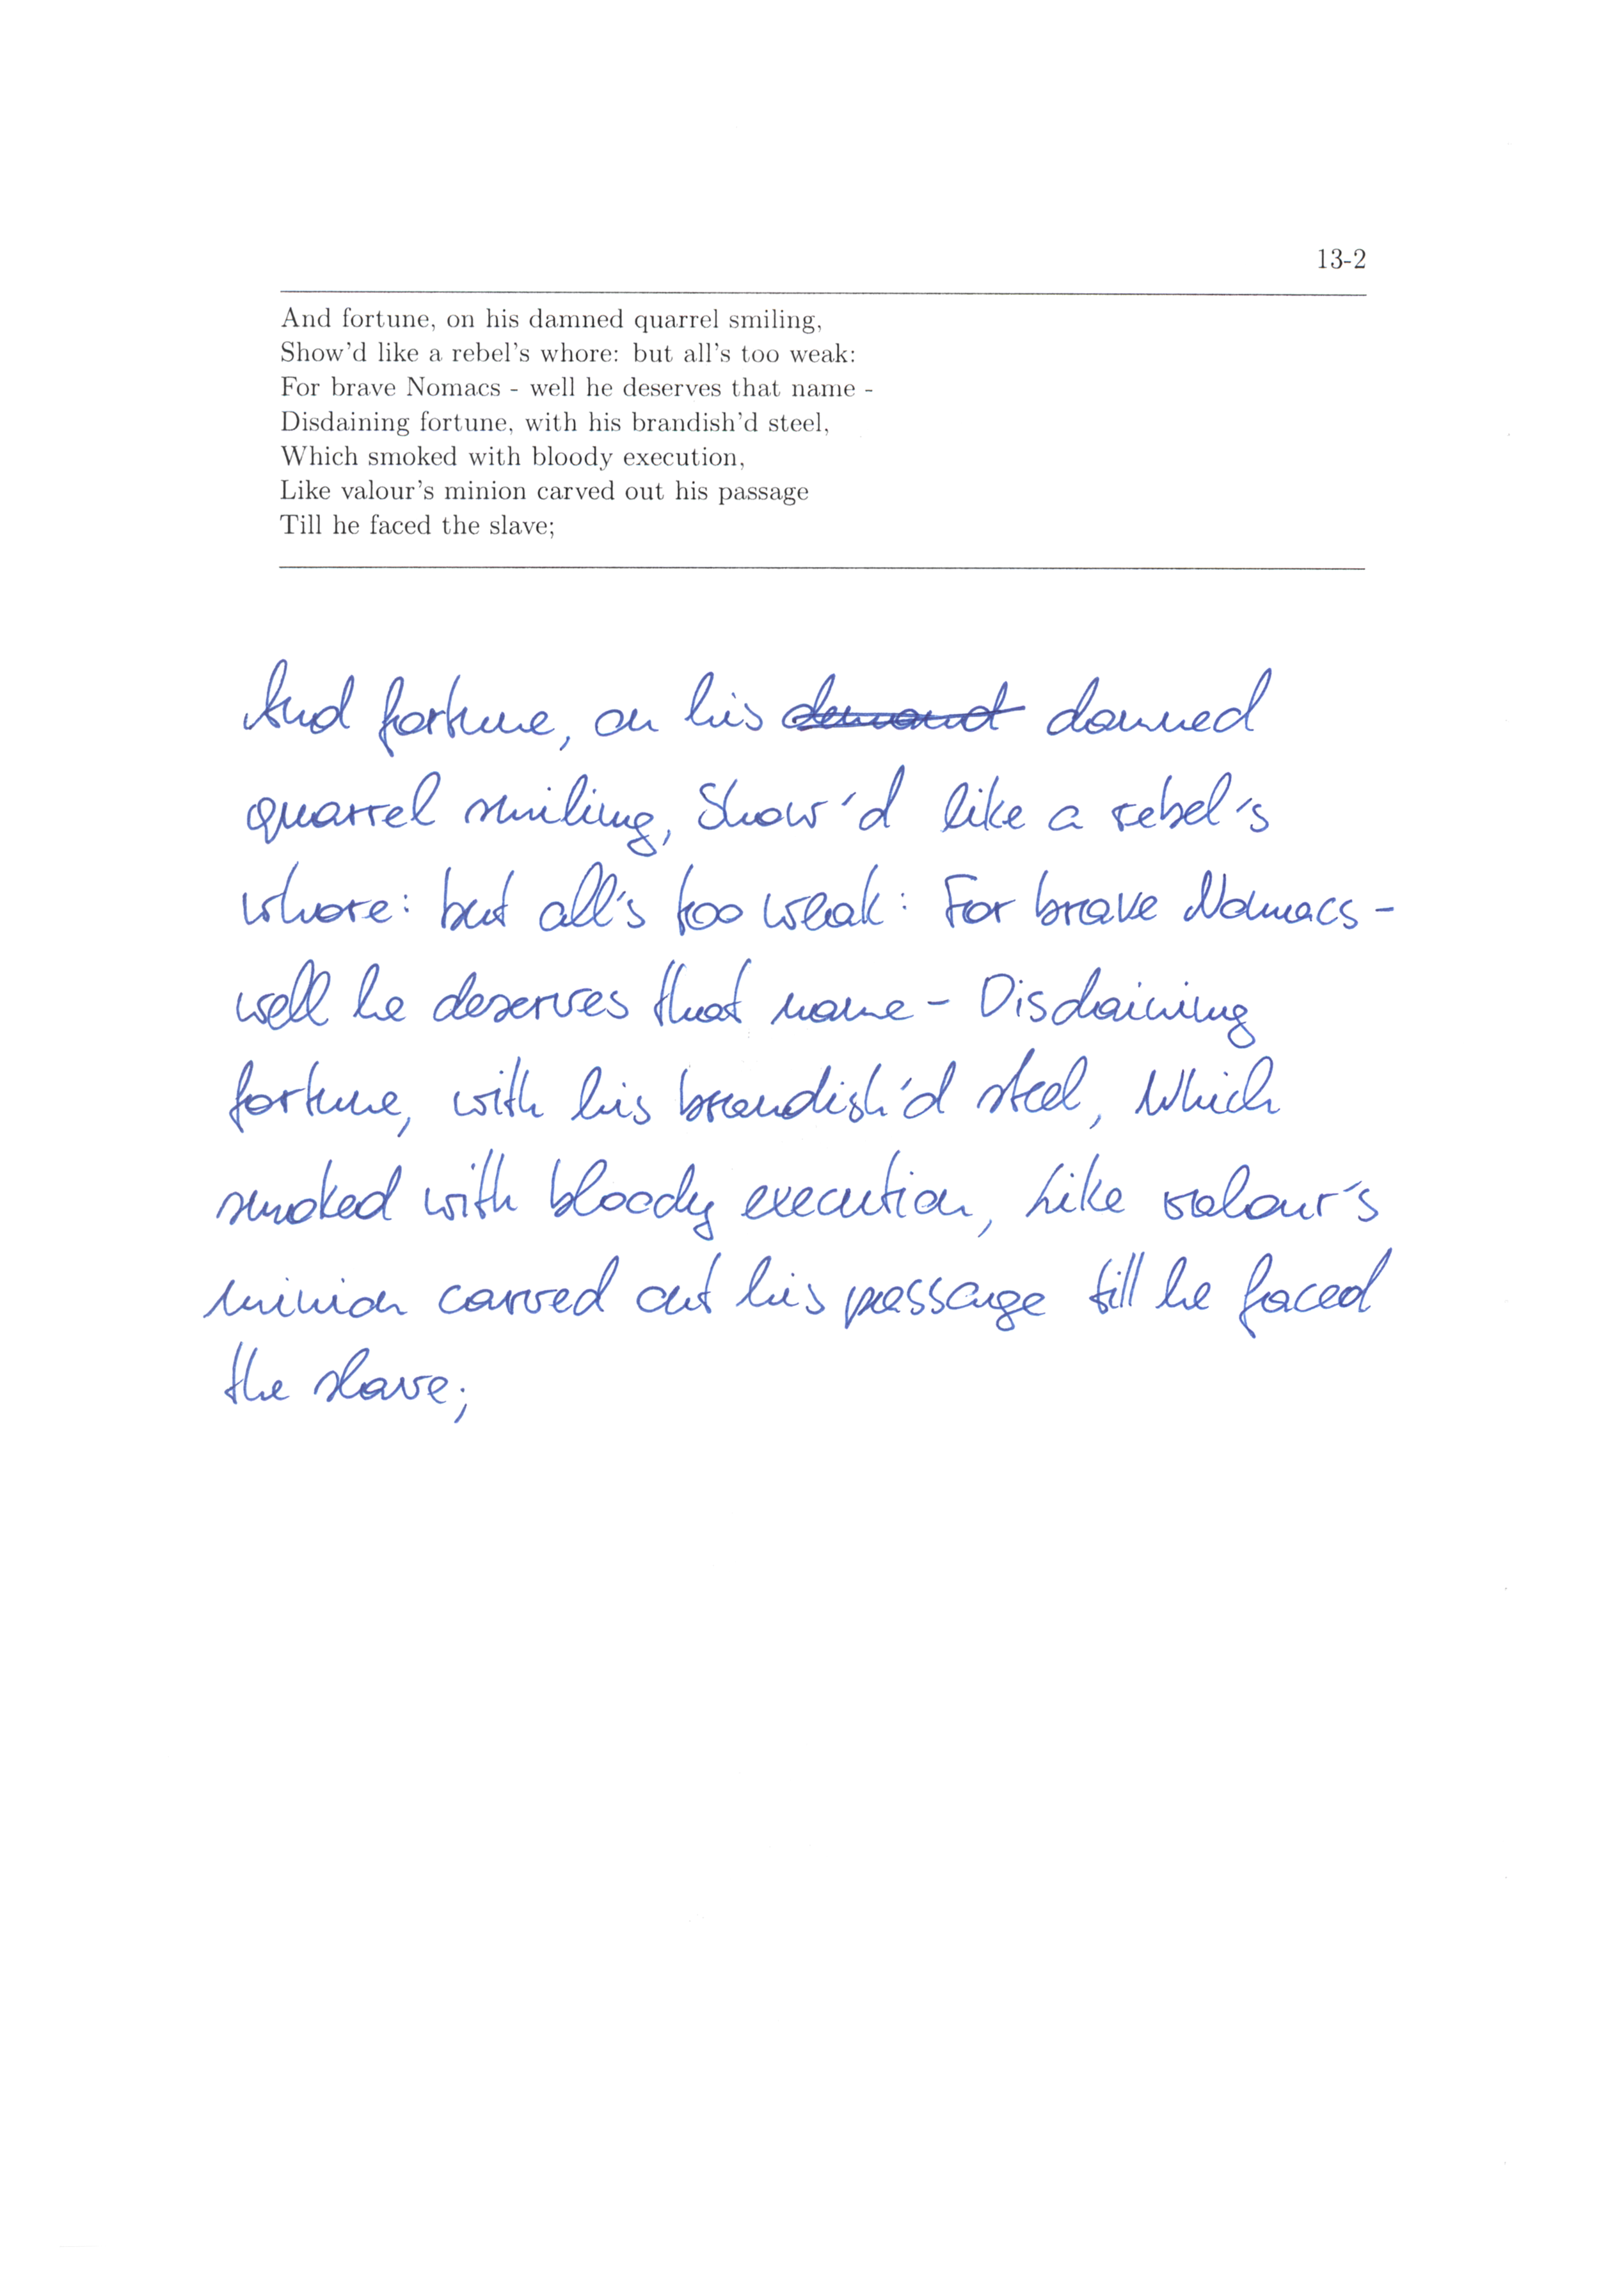 13-2
And fortune, on his damned quarrel smiling,
Show'd like a rebel's whore: but all's too weak:
For brave Nomacs - well he deserves that name -
Disdaining fortune, with his brandish'd steel,
Which smoked with bloody execution,
Like valour's minion carved out his passage
Till he faced the slave;
And fortune, on his damned
quarrel smiling, Show'd like a rebel's
whore: but all's too weak: For brave Nomacs -
well he deserves that name - Disdaining
fortune, with his brandish'd steel, Which
smoked with bloody execution, Like valour's
minion carved out his passage till he faced
the slave;